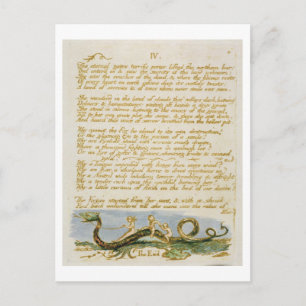 IV.
The eternal gates terrific porter lifted the northern bar:
Thel enter'd in & saw the secrets of the land unknown;
She saw the couches of the dead, & where the fibrous roots
Of every heart on earth infixes deep its restless twists:
A land of sorrows & of tears where never smile was seen.
She wander'd in the land of clouds thro' valleys dark, listning
Dolours & lamentations: waiting oft beside a dewy grave
She stood in silence, listning to the voices of the ground,
Till to her own grave plot she came, & there she sat down,
And heard this voice of sorrow breathed from the hollow pit.
Why cannot the Ear be closed to its own destruction?
Or the glistning Eye to the poison of a smile!
Why are Eyelids stord with arrows ready drawn,
Where a thousand fighting men in ambush lie?
Or an Eye of gifts & graces, show'ring fruits & coined gold!
Why a Tongue impress'd with honey from every wind?
Why an Ear, a whirlpool fierce to draw creations in?
Why a Nostril wide inhaling terror trembling & affright
Why a tender curb upon the youthful burning boy!
Why a little curtain of flesh on the bed of our desire?
The Virgin started from her seat, & with a shriek
Fled back unhinderd till she came into the vales of
Har
The End